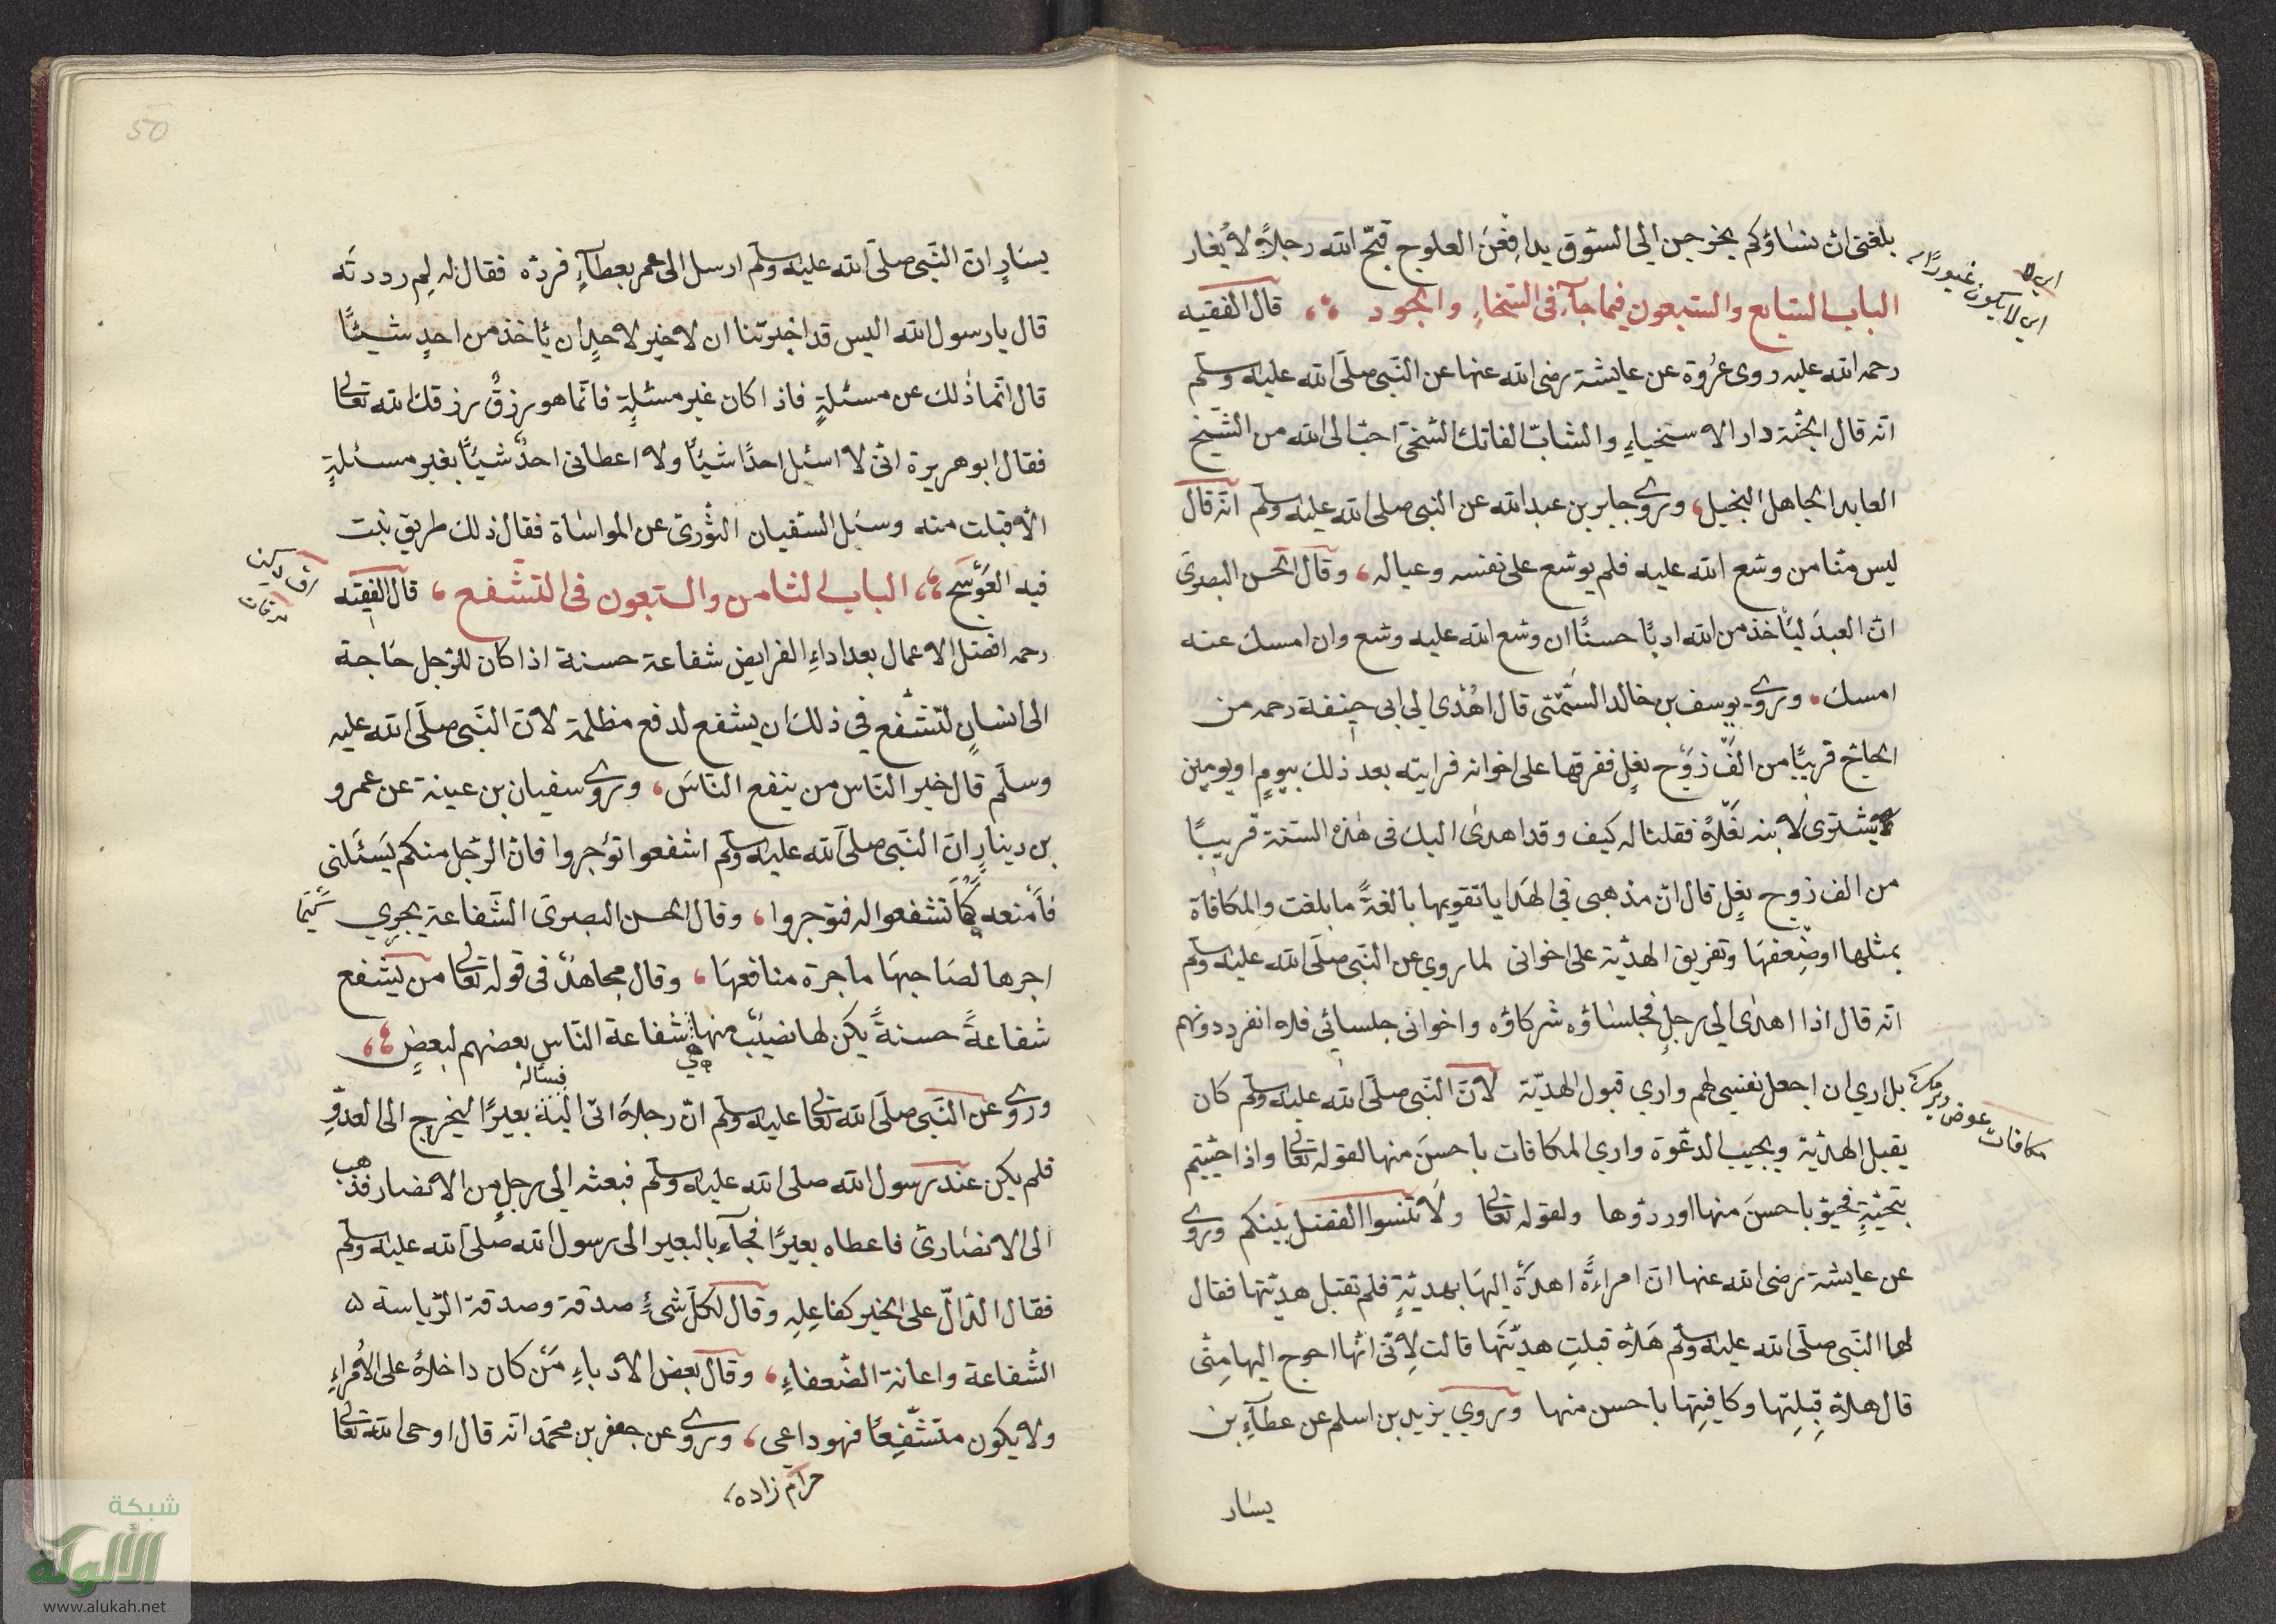 بلغنى ان نساؤكم يخرجن الى السّوق يدافِعْنَ العلوج قبّح الله رجلاً لا يُغار
اى لا يكون غيورًا
الباب السّابع والسّبعون فيما جآء فى السّخاءِ والجود قال الفقيه
رحمه الله عليه روى عُروة عن عايشة رضى الله عنها عن النّبى صلّى الله عليه وسلّم
انّه قال الجنّة دار الاسخياءِ والشابّ الفاتك السّخىّ احبّ الى الله من الشّيخ
العابد الجاهل البخيل، وروى جابر بن عبد الله عن النبى صلى الله عليه وسلّم انّه قال
ليس منّا من وسّع الله عليه فلم يوسّع على نفسه وعياله، وقال الحسن البصرىّ
انّ العبدَ ليأخذ من الله ادبًا حسنًا ان وسّع الله عليه وسّع وان امسك عنه
امسك، وروى يوسف بن خالد السَّمْتى قال اُهْدى الى ابى حنيفة رحمه من
الحاجّ قريبًا من الفِ زَوْج نعلٍ ففرقها على اخوانه فرايته بعد ذلك بيومٍ او يومين
يشترى لابنه نعلاً فقلنا له كيف وقد اهدى اليك فى هذه السّنة قريبًا
من الف زوج نعلٍ قال انّ مذهبى فى الهدايا تقويمها بالغةً ما بلغت والمكافاة
بمثلها او ضِعفها وتفريق الهديّة على اخوانى لما روى عن النّبى صلّى الله عليه وسلّم
انّه قال اذا اهدى الى رجلٍ فجلساؤه شركاؤه واخوانى جلسائى فلا انفرد دونهم
بل ارى ان اجعل نفسى لهم وارى قبول الهديّة لانّ النّبى صلّى الله عليه وسلّم كان
مكافات عوض ويرمك
يقبل الهديّة ويجيب الدعْوة وارى المكافات باحسنَ منها لقوله تعالى واذا حيّيتم
بتحيّةٍ فحيّو باحسنَ منها او ردّوها ولقوله تعالى ولا تنسوا الفضل بينكم وروى
عن عايشة رضى الله عنها انّ امراءةً اهدَةْ اليها بهديّةٍ فلم تقبل هديّتها فقال
لها النّبى صلّى الله عليه وسلّم هَلاّ قبلتِ هديّتها قالت لِانّى انّها احوج اليها مِنّى
قال هلاّ قبِلتِها وكافيتِها باحسن منها وروى يزيد بن اسلم عن عطآءِ بن
يسار
50
يسَارٍ انّ النّبى صلّى الله عليه وسلّم ارسل الى عمر بعطآءٍ فردّه فقال له لِم رددته
قال يا رسول الله اليس قد اخبرتنا ان لا خير لاحدٍ ان يأخذ من احدٍ شيئًا
قال انّما ذٰلك عن مسئلةٍ فاذا كان غير مسئلةٍ فانّما هو رزقٌ رزقك الله تعالى
فقال ابو هريرة انّى لا اسئل احدًا شيئًا ولا اعطانى احدٌ شيئًا بغير مسئلةٍ
الاّ قبلت منه وسئل السّفيان الثّورىّ عن المواساة فقال ذلك طريق نبت
فيه العَوْسَج، الباب الثامن والسبعون فى التشفّع، قال الفقيه
رحمه افضل الاعمال بعد اداءِ الفرايض شفاعة حسنة اذا كان للرّجل حَاجة
الى انسانٍ لتشفّع فى ذلك ان يشفع لدفع مظلمة لانّ النّبى صلّى الله عليه
وسلّم قال خير النّاس من ينفع النّاسَ، وروى سفيان بن عينة عن عمرو
بن دينارٍ انّ النّبى صلّى الله عليه وسلّم اشفعوا تؤجروا فانّ الرّجل منكم يَسئَلنى
فاَمنعه كما تشفعوا له فتوجروا، وقال الحسن البصرىّ الشّفاعة يجرى
اجرها لصَاحبها ما جرة منافعها، وقال مجاهدٌ فى قوله تعالى من يشفع
شفاعةً حسنةً يكن لها نصيبٌ منها هى شفاعة النّاس بعضهم لبعضٍ،
وروى عن النّبى صلّى الله تعالى عليه وسلّم انّ رجلاً اتى اليه فسأله بعيرًا ليخرج الى العدوّ
فلم يكن عند رسول الله صلى الله عليه وسلّم فبعثه الى رجلٍ من الانصار فذهب
الى الانصارىّ فاعطاه بعيرًا فجآء بالبعير الى رسول الله صلّى الله عليه وسلّم
فقال الدّالّ على الخير كفاعِلِه وقال لكلّ شىءٍ صدقة وصدقة الرّياسة
الشّفاعة واعانة الضّعفاءِ، وقال بعض الادباءِ مَن كان داخلاً على الاُمراءِ
ولا يكون متشفّعًا فهو داعى، وروى عن جعفر بن محمّد انّه قال اوحى الله تعالى
حرام زاده
شبكة
الألوكة
www.alukah.net